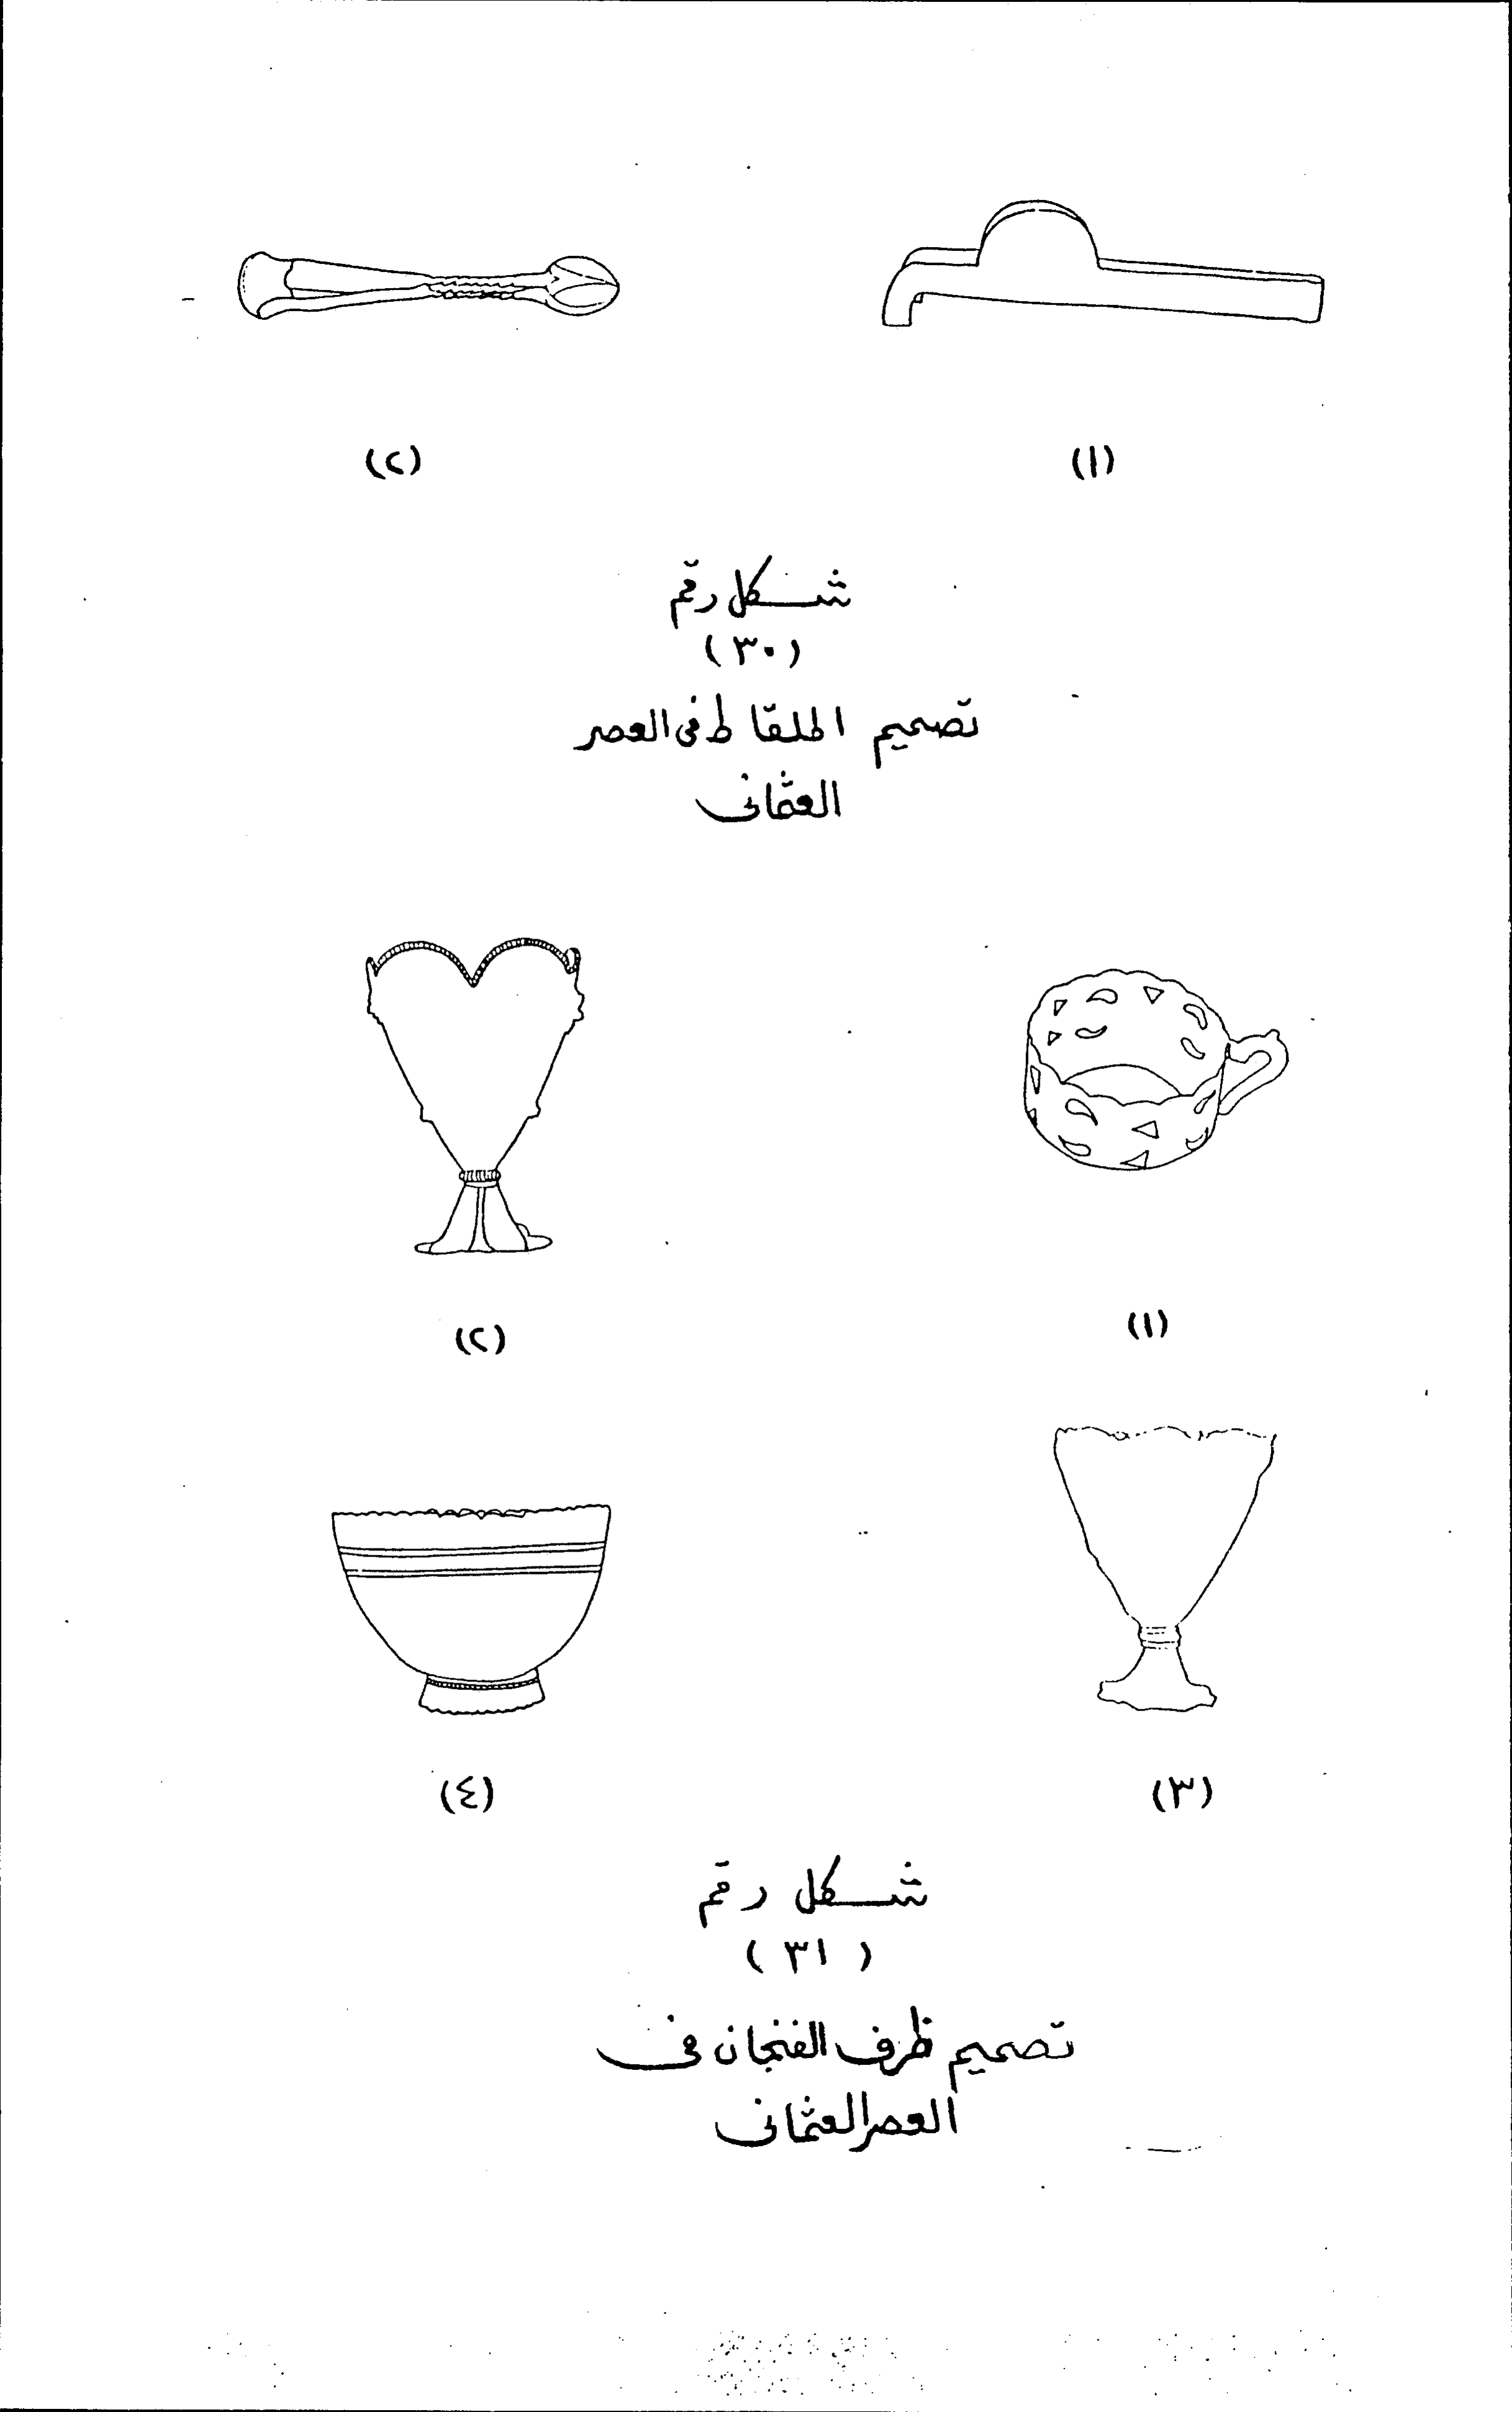 (١) (٢)
شكل رقم
(٣٠)
تصميم الملقاط فى العصر
العثمانى
(١) (٢)
(٣) (٤)
شكل رقم
(٣١)
تصميم ظرف الفنجان فى
العصر العثمانى